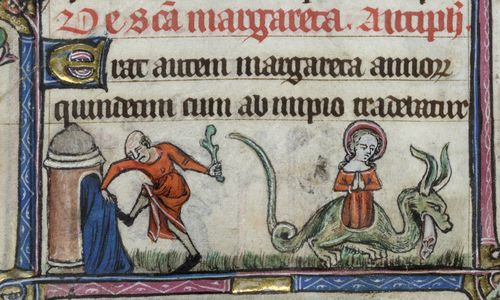 De sc̄a margareta. Antiph̄.
Erat autem margareta annoꝝ
quindecim cum ab impio traderetur